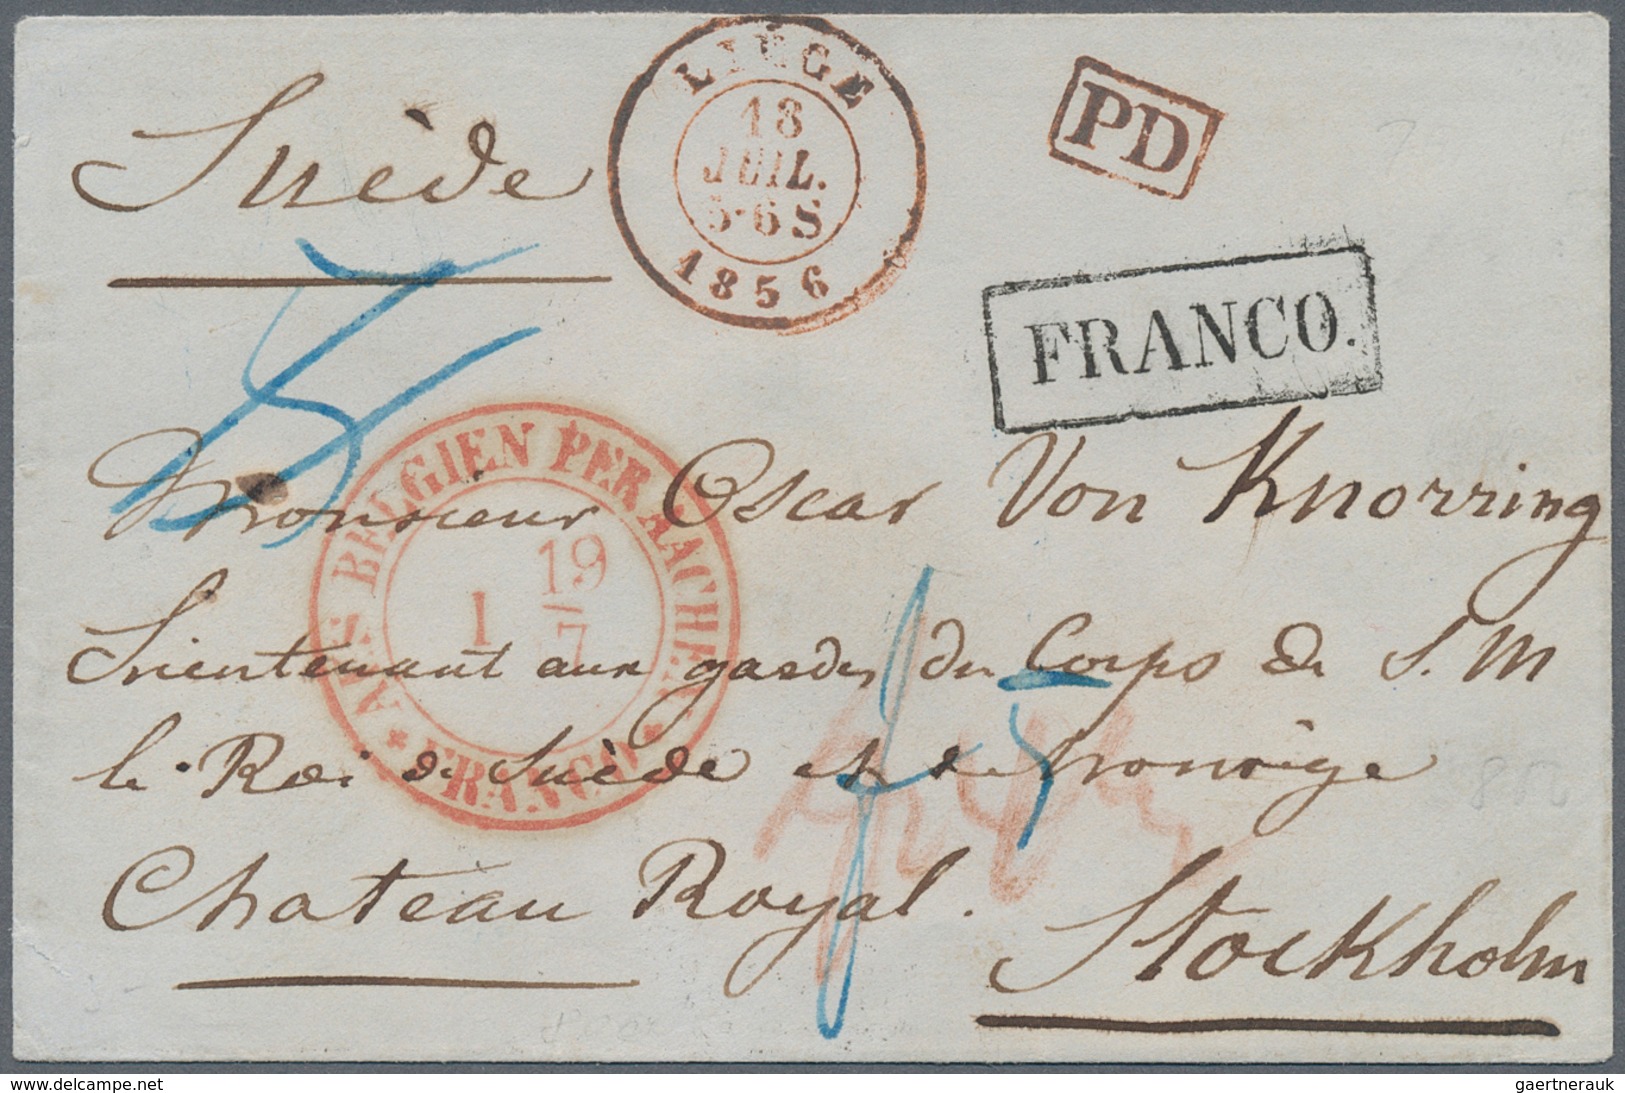 LIÉGE
18
JUIL.
5-6 S
1856
PD
Suède
FRANCO.
AUS BELGIEN PER AACHEN
19
1
7
* FRANCO *
Monsieur Oscar Von Knorring
Lieutenant aux gardes du Corps de S. M
le Roi de Suède et de Norwège
Chateau Royal.
Stockholm
gaertnerauk@delcampe.net